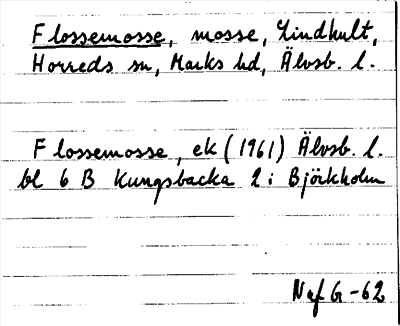 Flossemosse, mosse, Lindhult,
Horreds sn, Marks hd, Älvsb. l.
Flossemosse, ek (1961) Älvsb. l.
bl 6 B Kungsbacka 2 i Björkholm
Nef G -62